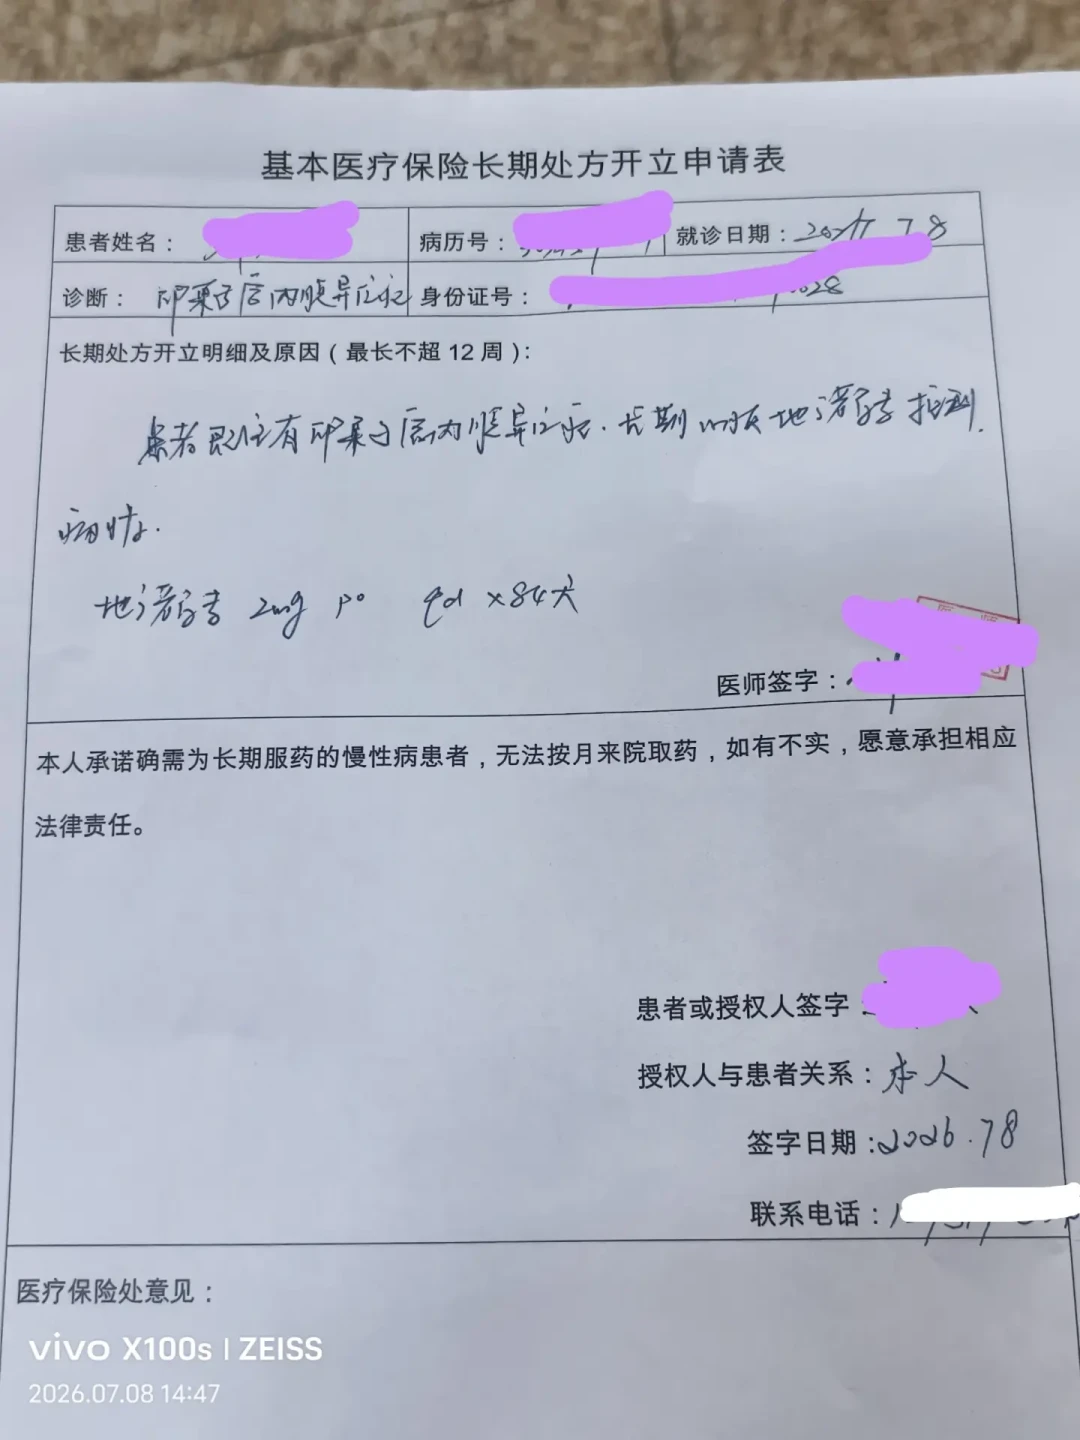 基本医疗保险长期处方开立申请表
患者姓名： 病历号： 就诊日期： 7 8
诊断： 子宫内膜异位症 身份证号：
长期处方开立明细及原因（最长不超 12 周）：
患者既往有 子宫内膜异位症. 长期 地诺孕素 控制
病情.
地诺孕素 2mg po qd ×84天
医师签字：
本人承诺确需为长期服药的慢性病患者，无法按月来院取药，如有不实，愿意承担相应
法律责任。
患者或授权人签字：
授权人与患者关系：本人
签字日期：2026.78
联系电话：
医疗保险处意见：
vivo X100s | ZEISS
2026.07.08 14:47